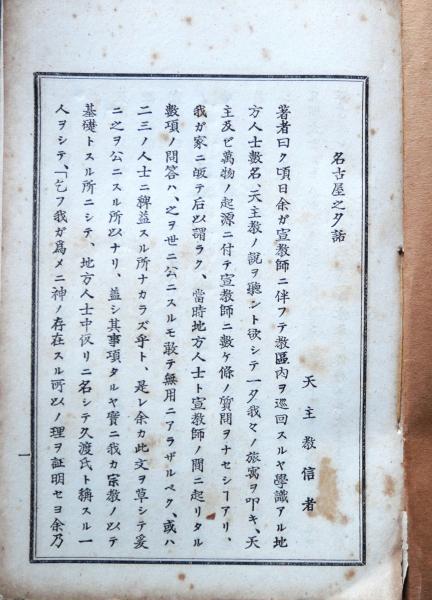 名古屋之夕話
天主教信者
著者曰ク頃日余ガ宣教師ニ伴フテ教區内ヲ巡回スルヤ學識アル地
方人士數名、天主教ノ説ヲ聽ント欲シテ一夕我々ノ旅寓ヲ叩キ、天
主及ビ萬物ノ起源ニ付テ宣教師ニ數ケ條ノ質問ヲナセシヿアリ、
我ガ家ニ皈テ后以謂ラク、當時地方人士ト宣教師ノ間ニ起リタル
數項ノ問答ハ、之ヲ世ニ公ニスルモ敢テ無用ニアラザルベク、或ハ
二三ノ人士ニ裨益スル所ナカラズ乎ト、是レ余カ此文ヲ草シテ爰
ニ之ヲ公ニスル所以ナリ、蓋シ其事項タルヤ實ニ我カ宗教ノ以テ
基礎トスル所ニシテ、地方人士中仮リニ名シテ久渡氏ト稱スル一
人ヲシテ、「乞フ我ガ爲メニ神ノ存在スル所以ノ理ヲ証明セヨ余乃
一